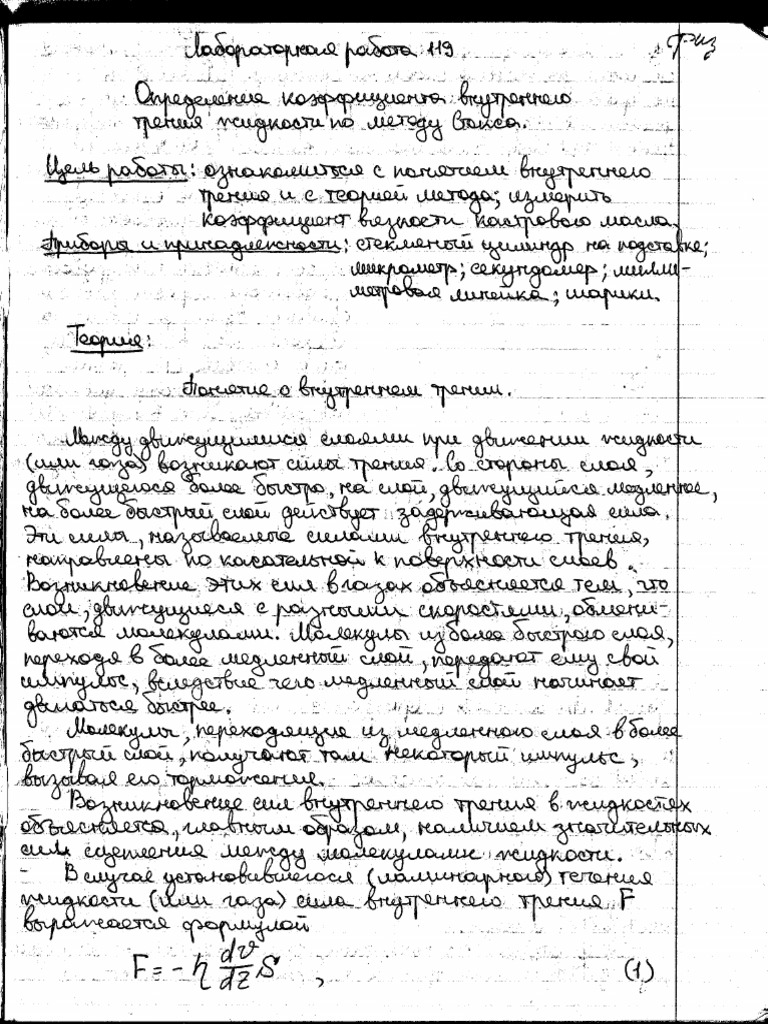 Лабораторная работа 119
физ
Определение коэффициента внутреннего
трения жидкости по методу Стокса.
Цель работы: ознакомиться с понятием внутреннего
трения и с теорией метода; измерить
коэффициент вязкости касторового масла.
Приборы и принадлежности: стеклянный цилиндр на подставке;
микрометр; секундомер; милли-
метровая линейка; шарики.
Теория:
Понятие о внутреннем трении.
Между движущимися слоями при движении жидкости
(или газа) возникают силы трения. Со стороны слоя,
движущегося более быстро, на слой, движущийся медленнее,
на более быстрый слой действует задерживающая сила.
Эти силы, называемые силами внутреннего трения,
направлены по касательной к поверхности слоев.
Возникновение этих сил в газах объясняется тем, что
слои, движущиеся с разными скоростями, обмени-
ваются молекулами. Молекулы из более быстрого слоя,
переходя в более медленный слой, передают ему свой
импульс, вследствие чего медленный слой начинает
двигаться быстрее.
Молекулы, переходящие из медленного слоя в более
быстрый слой, получают там некоторый импульс,
вызывая его торможение.
Возникновение сил внутреннего трения в жидкостях
объясняется, главным образом, наличием значительных
сил сцепления между молекулами жидкости.
В случае установившегося (ламинарного) течения
жидкости (или газа) сила внутреннего трения F
выражается формулой
F = - η dv/dz S , (1)